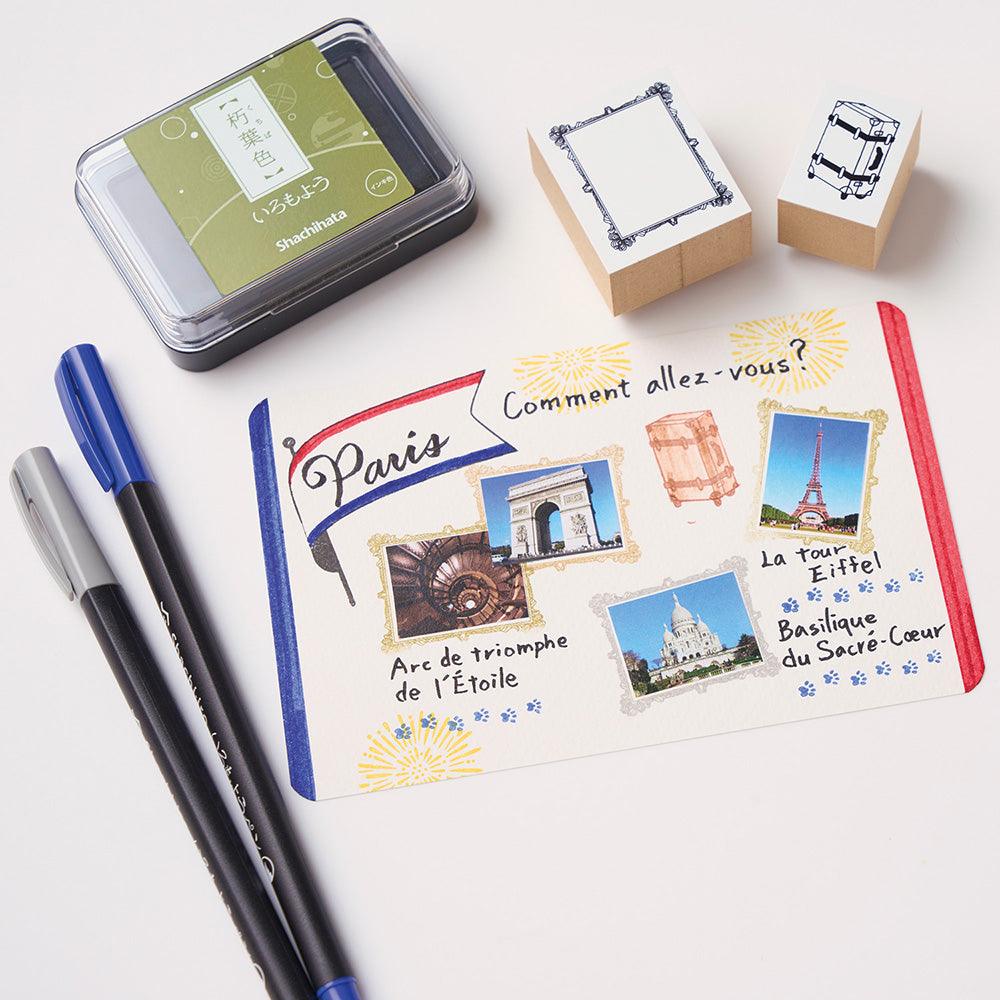 【朽葉色】
くちば
いろもよう
インキ色
Shachihata
Comment allez-vous?
Paris
La tour
Eiffel
Arc de triomphe
de l'Étoile
Basilique
du Sacré-Cœur